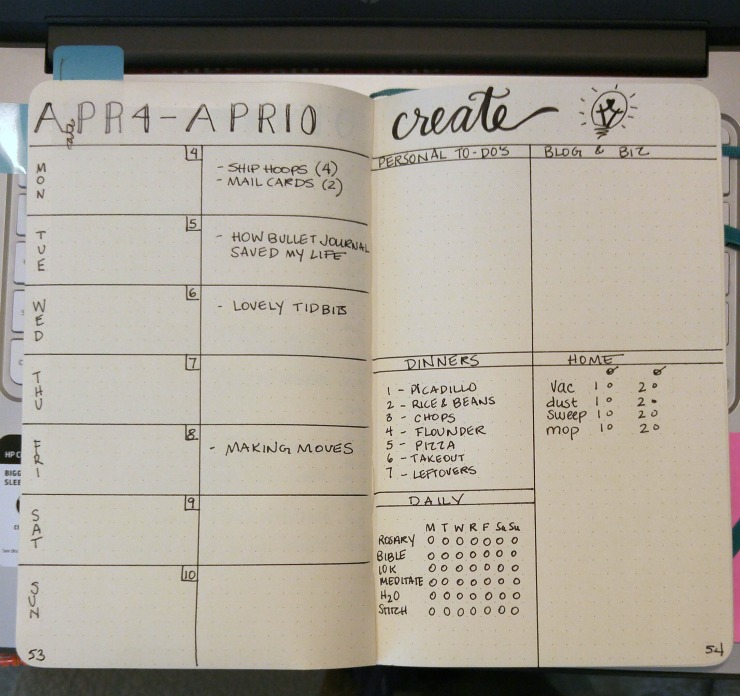 APR4-APR10
MON
4
- SHIP HOOPS (4)
- MAIL CARDS (2)
TUE
5
- HOW BULLET JOURNAL
SAVED MY LIFE
WED
6
- LOVELY TIDBITS
THU
7
FRI
8
- MAKING MOVES
SAT
9
SUN
10
53
create
PERSONAL TO-DO'S
BLOG & BIZ
DINNERS
1 - PICADILLO
2 - RICE & BEANS
3 - CHOPS
4 - FLOUNDER
5 - PIZZA
6 - TAKEOUT
7 - LEFTOVERS
HOME
Vac 1 2
dust 1 2
sweep 1 2
mop 1 2
DAILY
M T W R F Sa Su
ROSARY
BIBLE
10K
MEDITATE
H2O
STITCH
54
HP